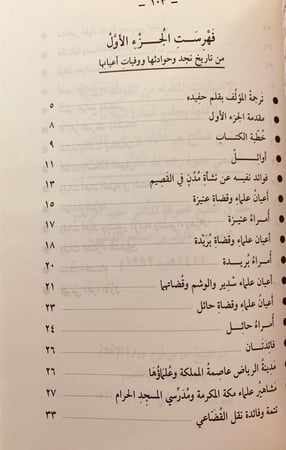 - ١٠٣ -
فَهْرِسَتِ الْجُزْءِ الأَوَّلْ
من تاريخ نجد وحوادثها ووفيات أعيانها
ترجمة المؤلف بقلم حفيده ٥
مقدمة الجزء الأول ٨
خُطْبة الكتاب ٩
أوائل ١١
فوائد نفيسه عن نشأة مُدُن في القصيم ١٣
أعيانُ علماء وقضاة عنيزة ١٥
أمراءُ عنيزة ١٧
أعيان علماء وقضاة بُرَيْدة ١٨
أمراء بُريدة ٢٠
أعيان علماء سُدير والوشم وقُضاتهما ٢١
أعيانُ علماء وقضاة حائل ٢٣
أمراءُ حائل ٢٤
فائدتان ٢٦
مَدينةُ الرياض عاصمةُ المملكة وعُلماؤها ٢٦
مَشاهيرُ علماء مكة المكرمة ومُدَرّسي المسجد الحرام ٢٧
تتمة وفائدة نقل القُضَاعي ٣٣